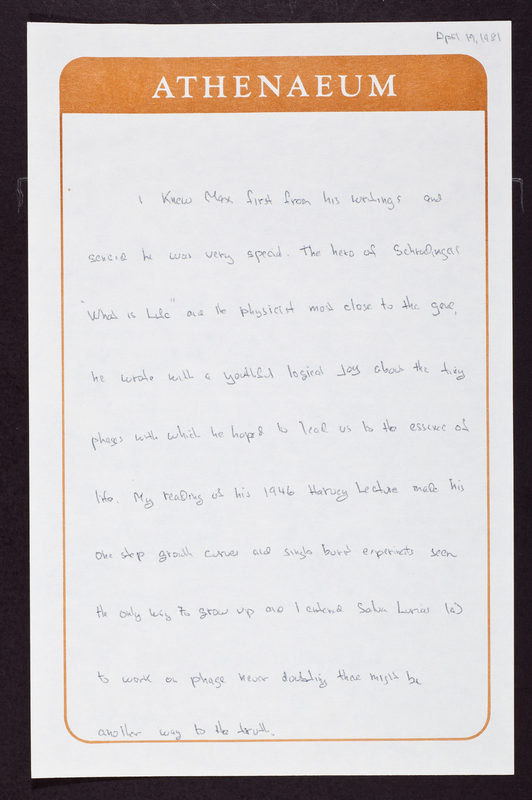 April 19, 1981
ATHENAEUM
I knew Max first from his writings and
sensed he was very special. The hero of Schrodinger
"What is Life" and the physicist most close to the gene,
he wrote with a youthful logical joy about the tiny
phages with which he hoped to lead us to the essence of
life. My reading of his 1946 Harvey Lecture made his
one step growth curves and single burst experiments seem
the only way to grow up and I entered Salva Lurias lab
to work on phage never doubting there might be
another way to the truth.